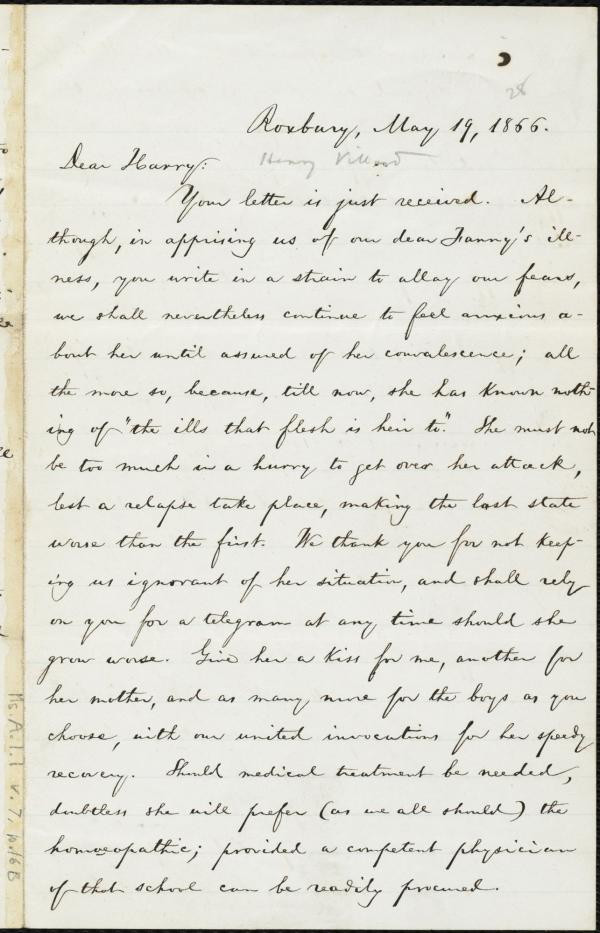 28
Roxbury, May 19, 1866.
Dear Harry:
Henry Villard
Your letter is just received. Al-
though, in apprising us of our dear Fanny's ill-
ness, you write in a strain to allay our fears,
we shall nevertheless continue to feel anxious a-
bout her until assured of her convalescence; all
the more so, because, till now, she has known noth-
ing of "the ills that flesh is heir to." She must not
be too much in a hurry to get over her attack,
lest a relapse take place, making the last state
worse than the first. We thank you for not keep-
ing us ignorant of her situation, and shall rely
on you for a telegram at any time should she
grow worse. Give her a kiss for me, another for
her mother, and as many more for the boys as you
choose, with our united invocations for her speedy
recovery. Should medical treatment be needed,
doubtless she will prefer (as we all should) the
homœopathic; provided a competent physician
of that school can be readily procured.
Ms. A. 1. 1 v. 7, p. 16B